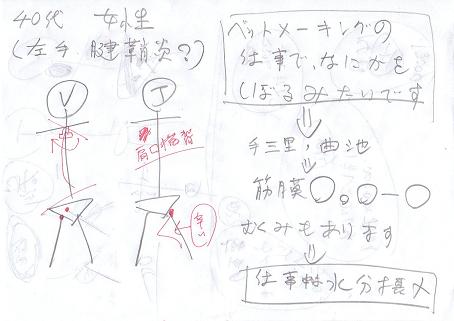 40代 女性
(左手.腱鞘炎?)
V
J
肩口
辛い
ベットメーキングの
仕事で、なにかを
しぼるみたいです
手三里,曲池
筋膜
むくみもあります
仕事中は水分摂メ